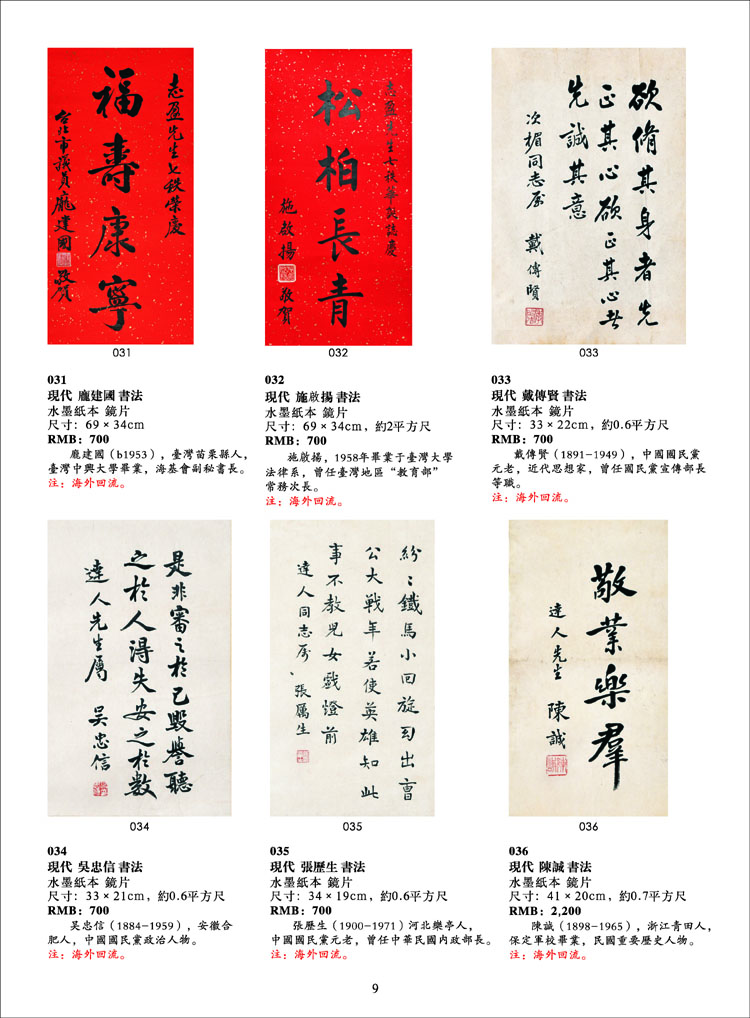 志盈先生七秩榮慶
福壽康寧
台北市議員龐建國
敬賀
031
志盈先生七秩華誕誌慶
松柏長青
施啟揚
敬賀
032
欲脩其身者先
正其心欲正其心者
先誠其意
次楣同志屬
戴傳賢
033
031
現代 龐建國 書法
水墨紙本 鏡片
尺寸: 69×34cm
RMB: 700
龐建國（b1953），臺灣苗栗縣人，
臺灣中興大學畢業，海基會副秘書長。
注：海外回流。
032
現代 施啟揚 書法
水墨紙本 鏡片
尺寸: 69×34cm，約2平方尺
RMB: 700
施啟揚，1958年畢業于臺灣大學
法律系，曾任臺灣地區“教育部”
常務次長。
注：海外回流。
033
現代 戴傳賢 書法
水墨紙本 鏡片
尺寸: 33×22cm，約0.6平方尺
RMB: 700
戴傳賢（1891-1949），中國國民黨
元老，近代思想家，曾任國民黨宣傳部長
等職。
注：海外回流。
是非審之於己毀譽聽
之於人得失安之於數
達人先生屬
吴忠信
034
紛〻鐵馬小回旋幻出曹
公大戰年若使英雄知此
事不教兒女戲燈前
達人同志屬
張厲生
035
敬業樂羣
達人先生
陳誠
036
034
現代 吳忠信 書法
水墨紙本 鏡片
尺寸: 33×21cm，約0.6平方尺
RMB: 700
吳忠信（1884-1959），安徽合
肥人，中國國民黨政治人物。
注：海外回流。
035
現代 張歷生 書法
水墨紙本 鏡片
尺寸: 34×19cm，約0.6平方尺
RMB: 700
張歷生（1900-1971）河北樂亭人，
中國國民黨元老，曾任中華民國内政部長。
注：海外回流。
036
現代 陳誠 書法
水墨紙本 鏡片
尺寸: 41×20cm，約0.7平方尺
RMB: 2,200
陳誠（1898-1965），浙江青田人，
保定軍校畢業，民國重要歷史人物。
注：海外回流。
9